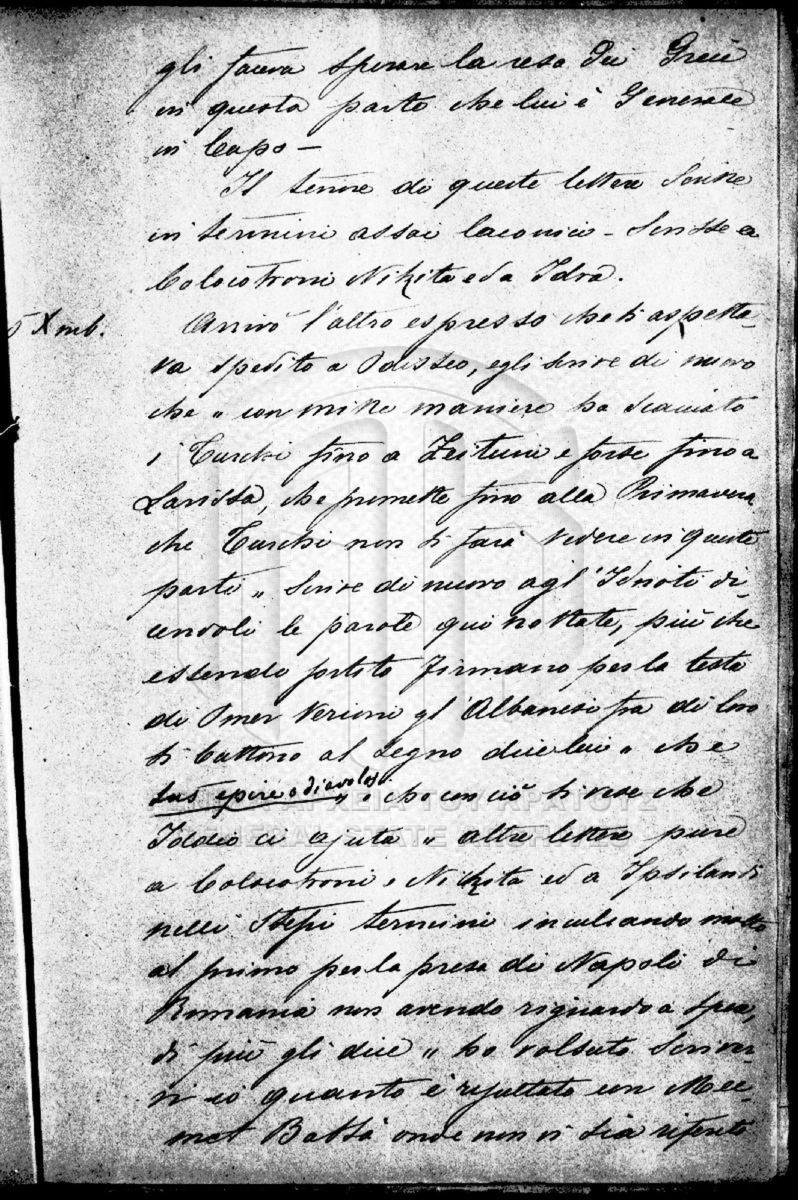 gli faceva sperare la resa dei Greci
in questa parte che lui è Generale
in Capo —
Il tenore di queste lettere scritte
in termini assai laconici - Scrisse a
Colocotroni Nikita ed a Idra.
5 Xmb.
Arrivò l'altro espresso che si aspetta-
va spedito a Odisseo, egli scrive di nuovo
che „ con mille maniere ha scacciato
i Turchi fino a Zeituni e forse fino a
Larissa, che promette fino alla Primavera
che Turchi non si farà vedere in queste
parti „ Scrive di nuovo agl' Idrioti di-
cendoli le parole qui nottate, più che
essendo sortito Firmano per la testa
di Omer Verioni gl' Albanesi fra di loro
si battono al Segno dice lui „ che
tus epire o diavolos „ che con ciò si vede che
Iddio ci ajuta „ altre lettere pure
a Colocotroni, Nikita ed a Ipsilandi
nelli stessi termini inculcando molto
al primo per la presa di Napoli di
Romania non avendo riguardo a spesa,
di più gli dice „ ho volsuto scriver-
vi io quanto è risultato con Mec-
met Bassà onde non vi sia riferito
ΓΕΝΙΚΑ ΑΡΧΕΙΑ ΤΟΥ ΚΡΑΤΟΥΣ
GENERAL STATE ARCHIVES